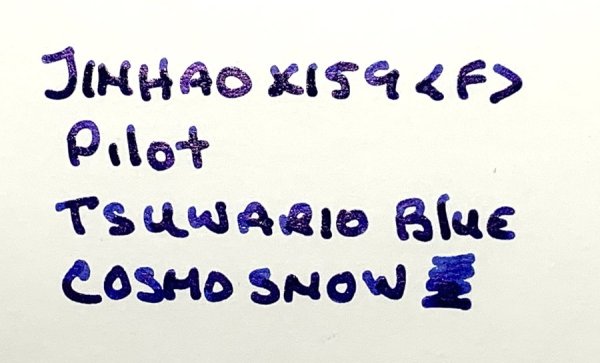 JINHAO X159 <F>
Pilot
TSUWARIO BLUE
COSMO SNOW